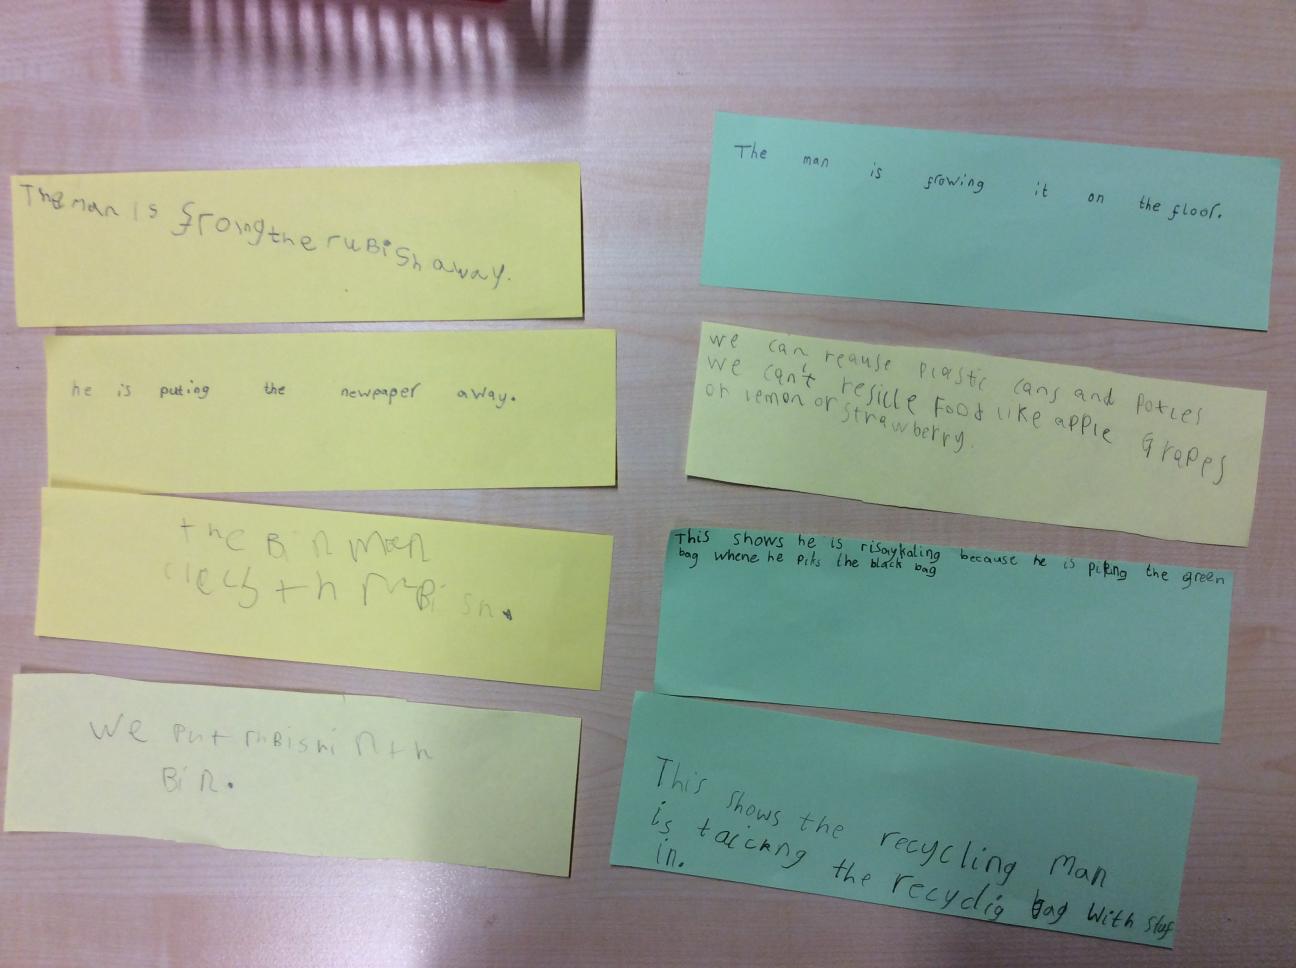 The man is froing the rubish away.
he is puting the newpaper away.
the Bin man
clecs th ruBish.
We put ruBish in th
Bin.
The man is frowing it on the floor.
we can reause plastic cans and potles
we can't resicle Food like apple Grapes
or lemon or strawberry.
This shows he is risaykaling because he is piking the green
bag whene he piks the black bag
This shows the recycling man
is taicking the recyclig bag with stuf
in.